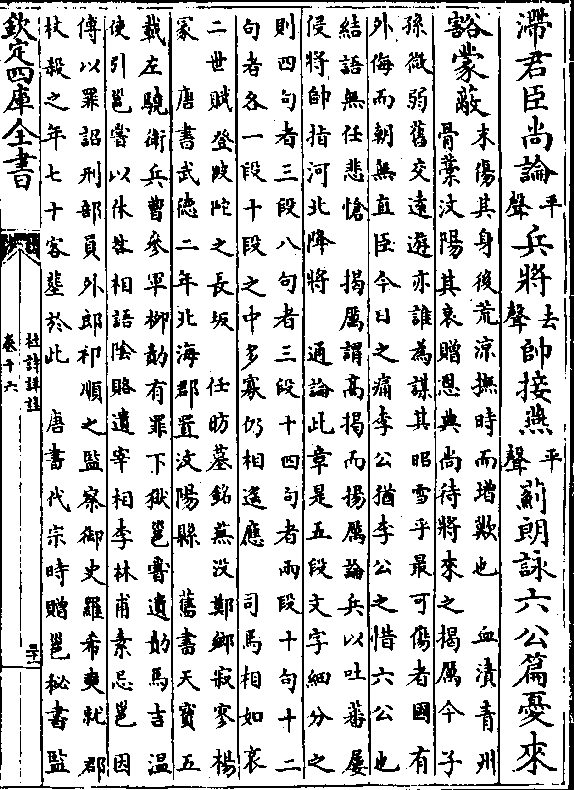 滯君臣尚論平聲兵將去聲帥接燕平聲薊朗詠六公篇憂來
豁蒙蔽末傷其身後荒涼撫時而增歎也 血漬青州
骨葉汶陽其哀贈恩典尚待將來之揭厲今子
孫微弱舊交遠遊亦誰為謀其昭雪乎最可傷者國有
外侮而朝無直臣今日之痛李公猶李公之惜六公也
結語無任悲愴 揭厲謂高揭而揚厲論兵以吐蕃屢
侵將帥指河北降將 通論此章是五段文字細分之
則四句者三段八句者三段十四句者兩段十句十二
句者各一段十段之中多寡仍相遙應 司馬相如哀
二世賦登陂陀之長坂 任昉墓銘蕪没鄭鄉寂寥楊
冡 唐書武德二年北海郡置汶陽縣 舊書天寶五
載左驍衛兵曹參軍柳勣有罪下獄邕嘗遺勣馬吉温
使引邕嘗以休咎相語陰賂遺宰相李林甫素忌邕因
傅以罪詔刑部員外郎祁順之監察御史羅希奭就郡
杖殺之年七十客塟於此 唐書代宗時贈邕秘書監
欽定四庫全書
杜詩詳註
卷十六